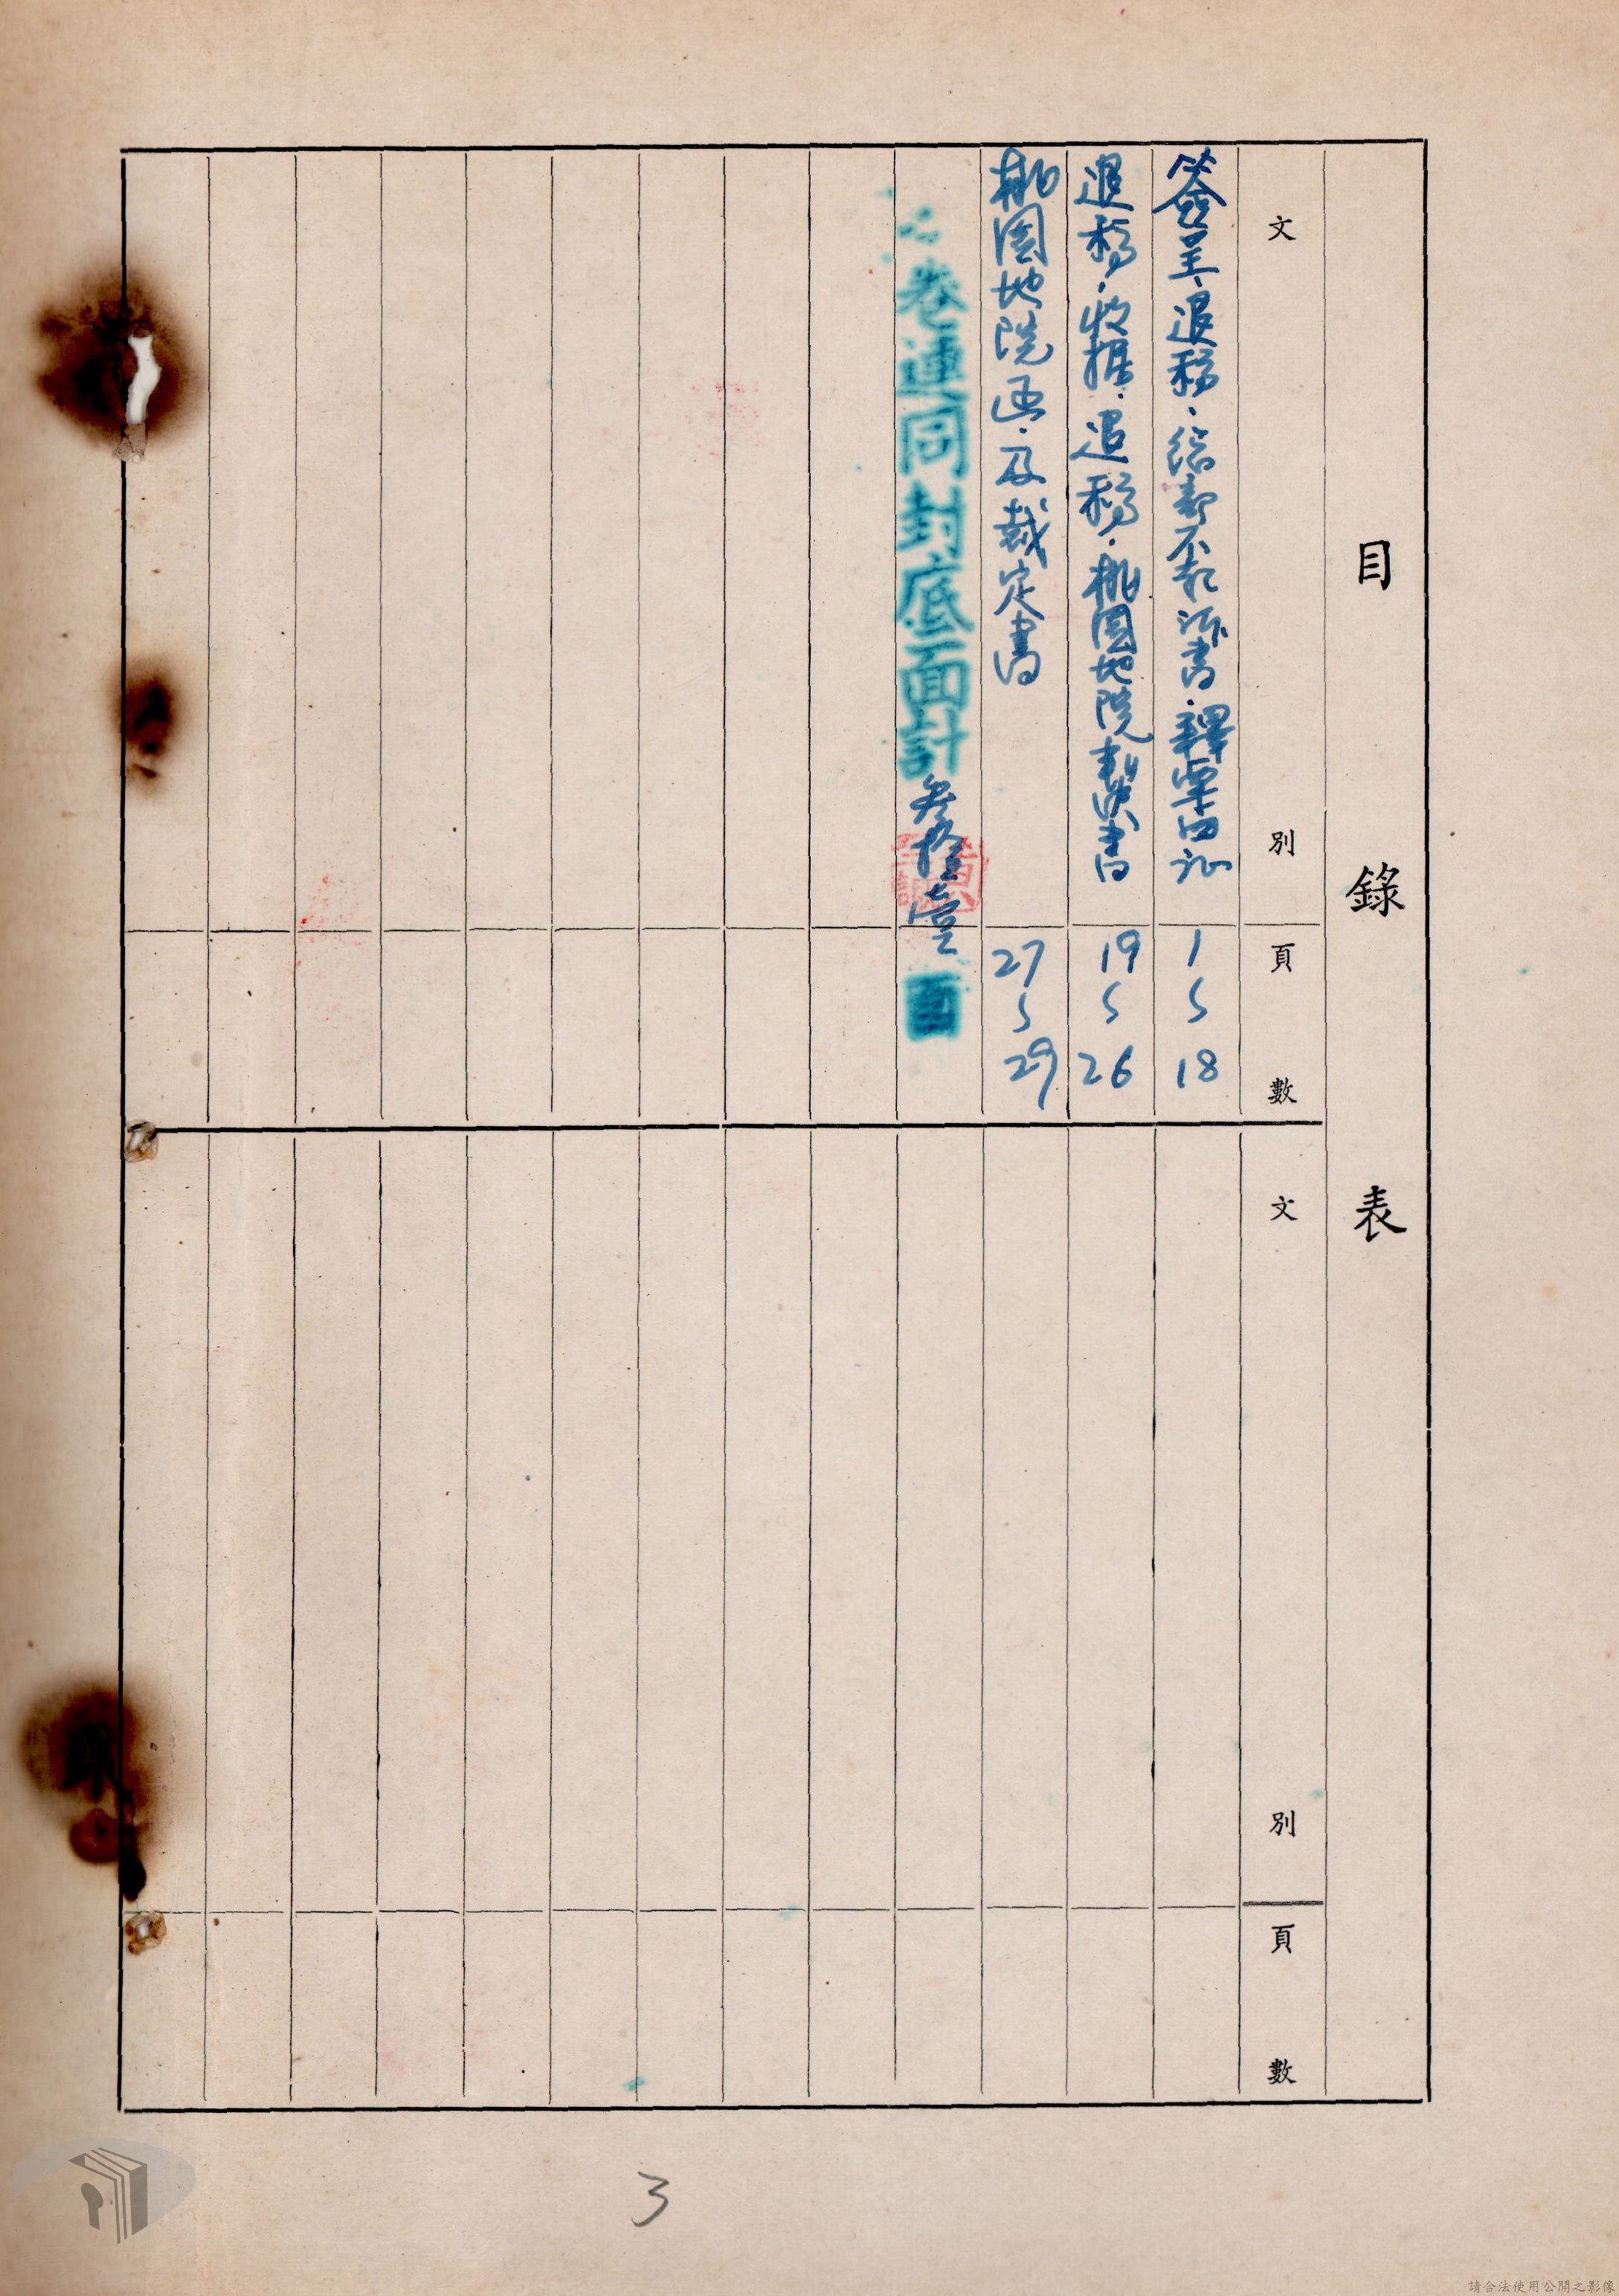 目錄表
文別
頁數
簽呈．退稿．結部不起訴書．釋票回証
1〜18
退稿．收據．退稿．桃園地院裁決書
19〜26
桃園地院函．及裁定書
27〜29
卷連同封底面計叁拾壹頁
文別
頁數
3
請合法使用公開之影像